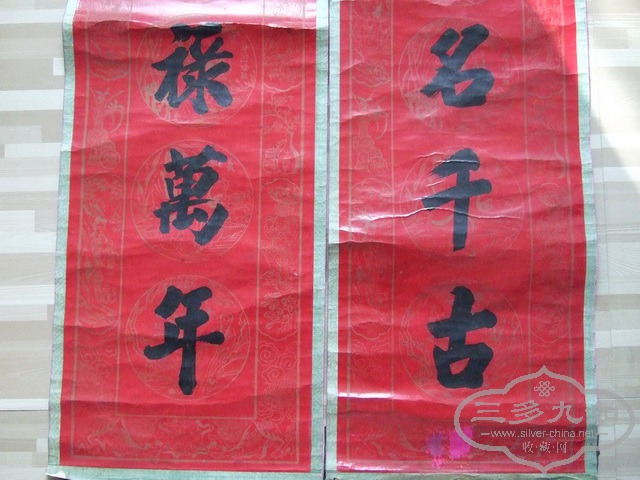 名千古
禄萬年
三多九
www.silver-china.net
收·藏·网